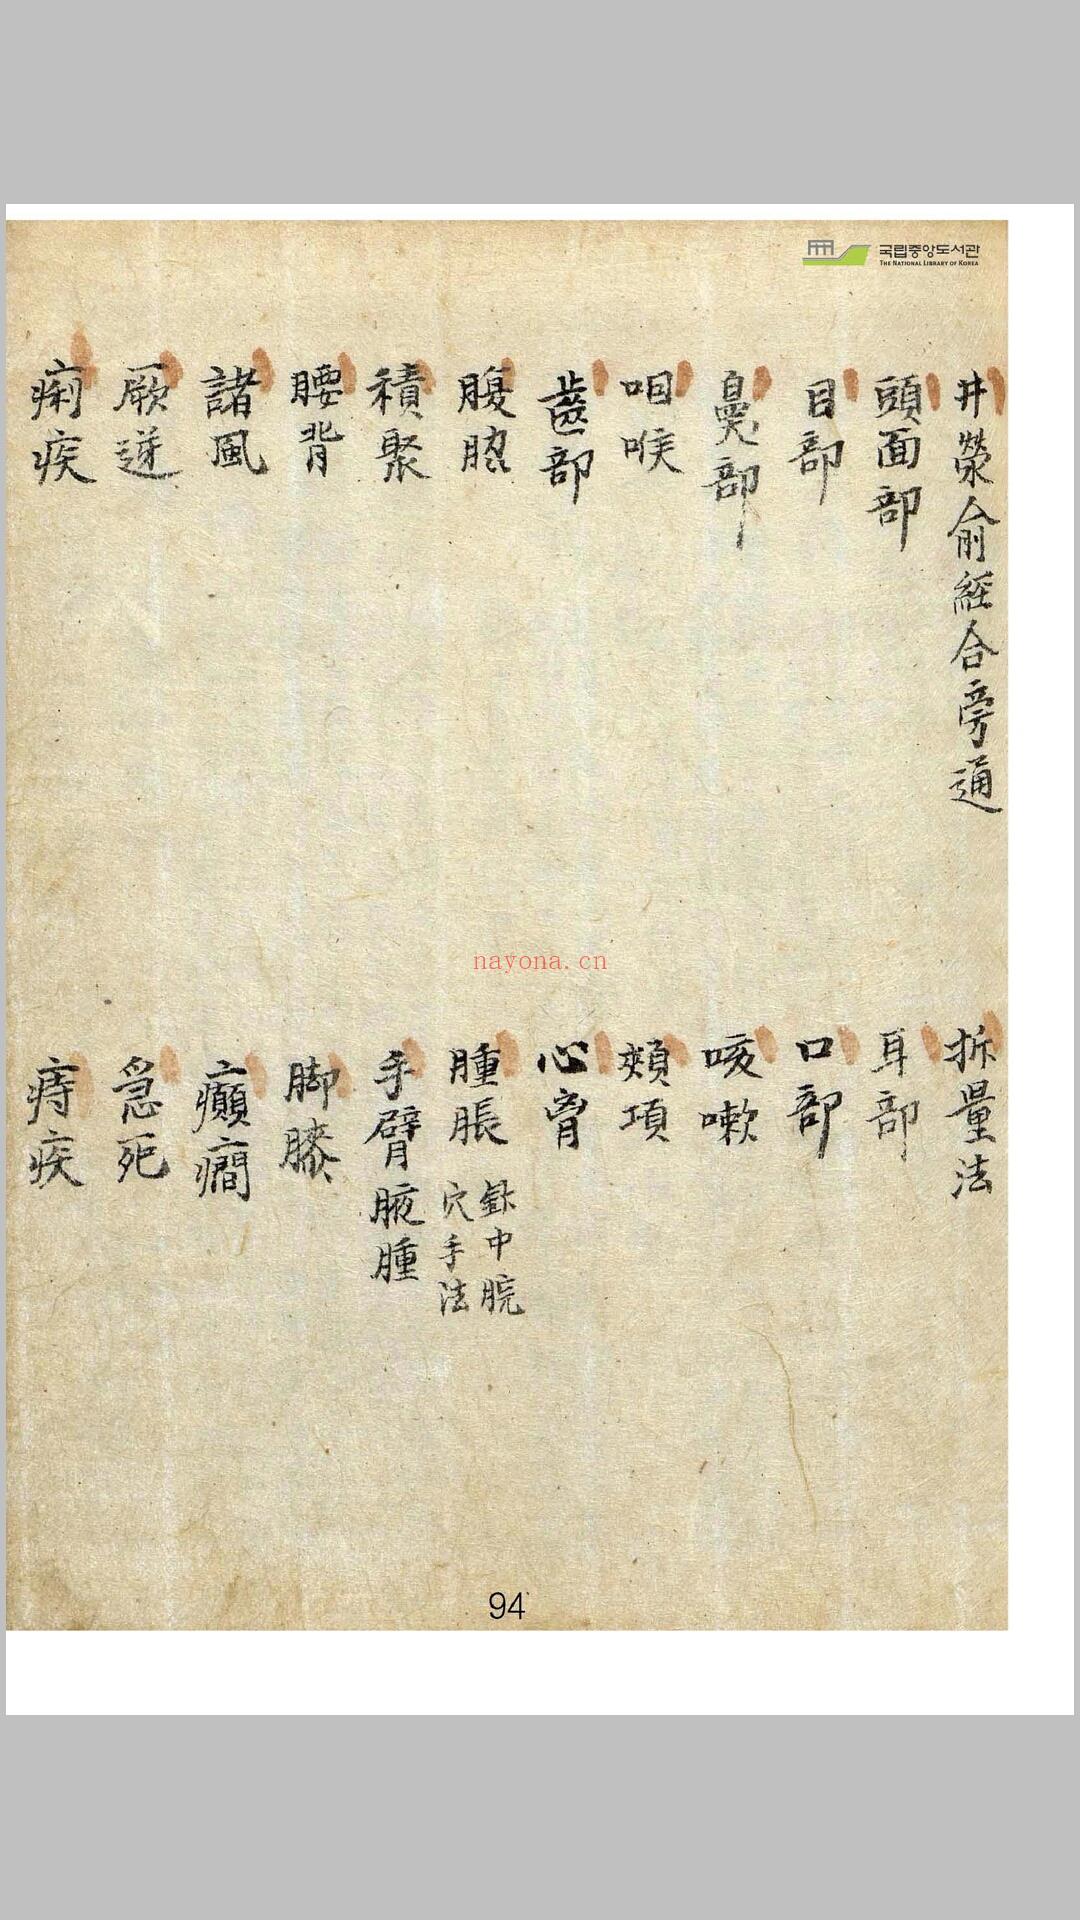 국립중앙도서관
THE NATIONAL LIBRARY OF KOREA
井滎俞經合旁通
折量法
頭面部
耳部
目部
口部
鼻部
咳嗽
咽喉
頰項
齒部
心胷
腹脇
腫脹 針中脘穴手法
積聚
手臂腋腫
腰背
脚膝
諸風
癲癎
厥逆
急死
痢疾
痔疾
nayona.cn
94